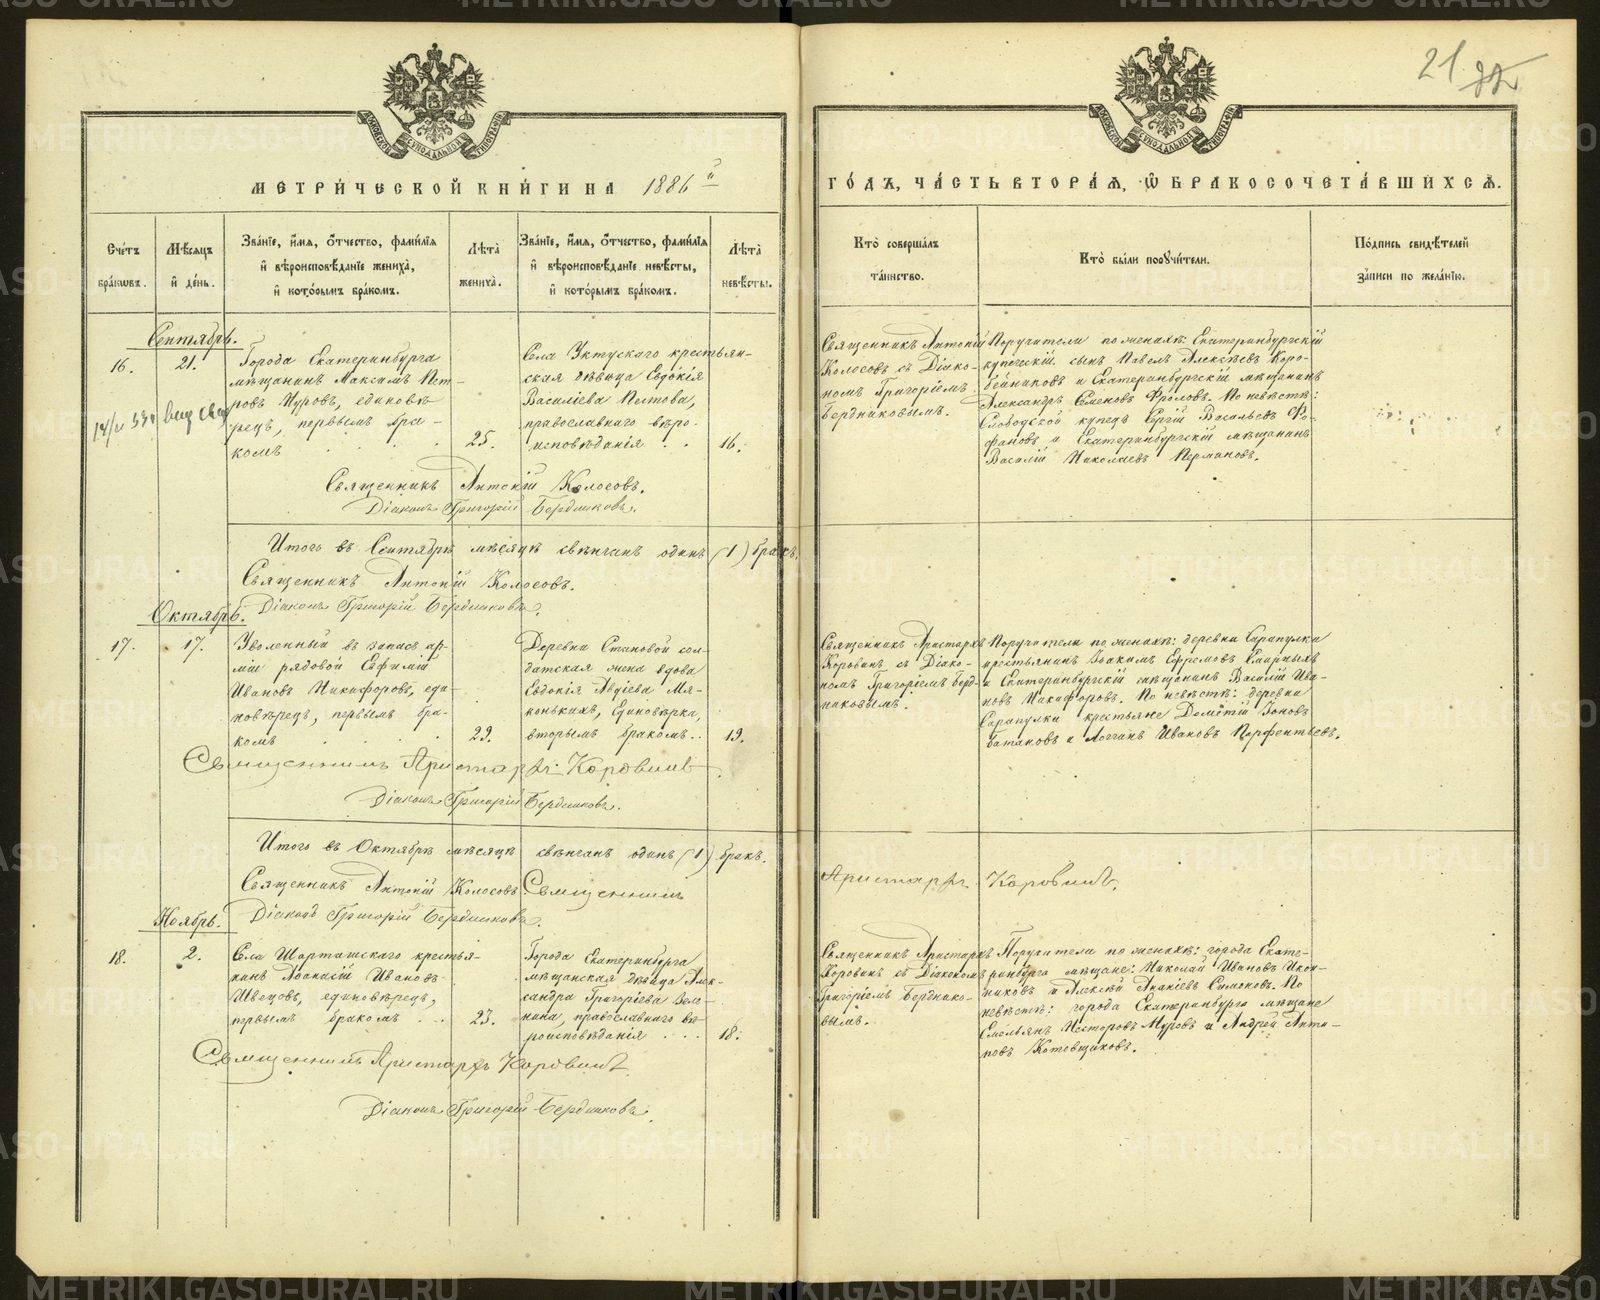 21
МЕТРИ́ЧЕСКОЙ КНИ́ГИ НА 1886 й
ГО́ДЪ, ЧА́СТЬ ВТОРА́Я, Ѡ БРАКОСОЧЕТА́ВШИХСЯ.
Сче́тъ бра́кѡвъ.
Мѣ́сяцъ и де́нь.
Зва́нїе, и́мя, ѻ́тчество, фами́лїя и вѣроисповѣ́данїе жениха̀, и кото́рымъ бра́комъ.
Лѣта̀ жениха̀.
Зва́нїе, и́мя, ѻ́тчество, фами́лїя и вѣроисповѣ́данїе невѣ́сты, и кото́рымъ бра́комъ.
Лѣта̀ невѣ́сты.
Кто̀ соверша́лъ та́инство.
Кто̀ бы́ли порꙋчи́тели.
По́дпись свидѣ́телей за́писи по жела́нїю.
Сентябрь.
16.
21.
Города Екатеринбурга
мѣщанинъ Максимъ Пет-
ровъ Нуровъ, единовѣ
рецъ, первымъ бра-
комъ
25.
Села Уктускаго крестьян-
ская дѣвица Евдокія
Василіева Пентова,
православнаго вѣро-
исповѣданія
16.
Священникъ Антоній
Колосовъ съ Діако-
номъ Григоріемъ
Бердниковымъ.
Поручители по женихѣ: Екатеринбургскій
купеческій сынъ Павелъ Алексѣевъ Коро-
бейниковъ и Екатеринбургскій мѣщанинъ
Александръ Семеновъ Фроловъ. По невѣстѣ:
Слободской купецъ Сергій Васильевъ Фо-
фановъ и Екатеринбургскій мѣщанинъ
Василій Николаевъ Пермяновъ.
Священникъ Антоній Колосовъ.
Діаконъ Григорій Бердниковъ.
Итого въ Сентябрѣ мѣсяцѣ свѣнчан один (1) бракъ.
Священникъ Антоній Колосовъ.
Діаконъ Григорій Бердниковъ.
Октябрь.
17.
17.
Уволенный въ запасъ ар-
міи рядовой Евфимій
Ивановъ Никифоровъ, еди-
новѣрецъ, первымъ бра-
комъ
29.
Деревни Становой сол-
датская жена вдова
Евдокія Авдіева Мя-
конькихъ, Единовѣрка,
вторымъ бракомъ
19.
Священникъ Аристархъ
Коровинъ съ Діако-
номъ Григоріемъ Берд-
никовымъ.
Поручители по женихѣ: деревни Сарапулки
крестьянинъ Іоакимъ Ефремовъ Смирныхъ
и Екатеринбургскій мѣщанинъ Василій Ива-
новъ Никифоровъ. По невѣстѣ: деревни
Сарапулки крестьяне Дометій Іоновъ
Батаковъ и Логгинъ Ивановъ Парфентьевъ.
Священникъ Аристархъ Коровинъ
Діаконъ Григорій Бердниковъ.
Итого въ Октябрѣ мѣсяцѣ свѣнчан одинъ (1) бракъ.
Священникъ Антоній Колосовъ Священникъ Аристархъ Коровинъ.
Діаконъ Григорій Бердниковъ.
Ноябрь.
18.
2.
Села Шарташскаго крестья-
нинъ Аѳанасій Ивановъ
Швецовъ, единовѣрецъ,
первымъ бракомъ
23.
Города Екатеринбурга
мѣщанская дѣвица Алек-
сандра Григоріева Зем-
нина, православнаго вѣ-
роисповѣданія
18.
Священникъ Аристархъ
Коровинъ съ Діакономъ
Григоріемъ Берднико-
вымъ.
Поручители по женихѣ: города Екате-
ринбурга мѣщане: Николай Ивановъ Икон-
никовъ и Алексѣй Ананіевъ Симоновъ. По
невѣстѣ: города Екатеринбурга мѣщане
Емельянъ Несторовъ Муровъ и Андрей Анти-
повъ Котовщиковъ.
Священникъ Аристархъ Коровинъ
Діаконъ Григорій Бердниковъ.
METRIKI.GASO-URAL.RU